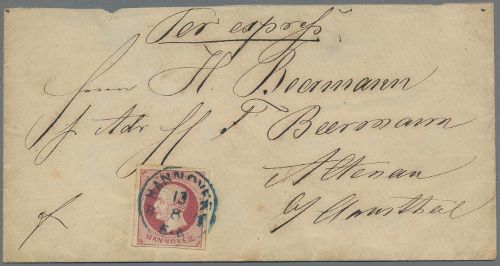 Per express.
Herrn H. Beermann
p Adr H F Beermann
Altenau
b/ Clausthal
fr
HANNOVER
13
8
HANNOVER